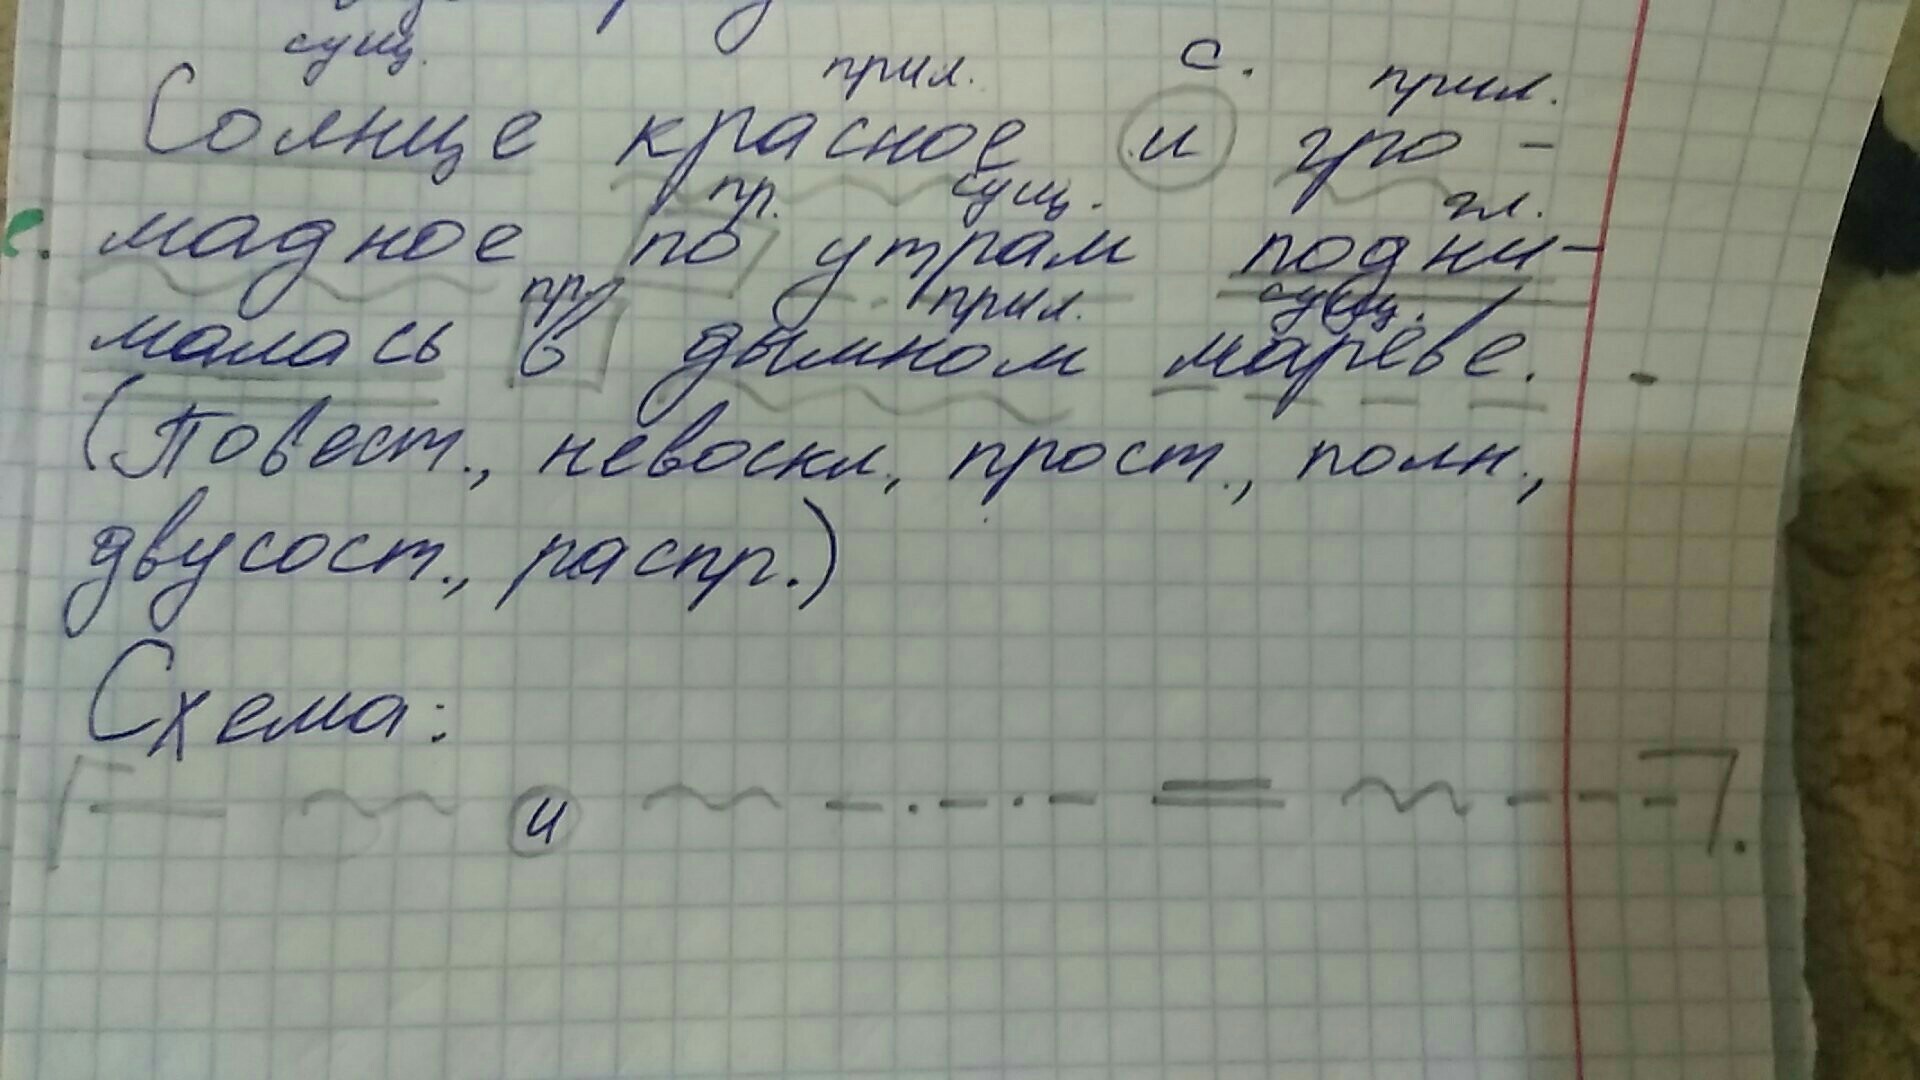 сущ. прил. с. прил.
Солнце красное и гро-
пр. сущ. гл.
мадное по утрам подни-
пр. прил. сущ.
малась в дымном мареве.
(Повест., невоскл., прост., полн.,
двусост., распр.)
Схема:
и